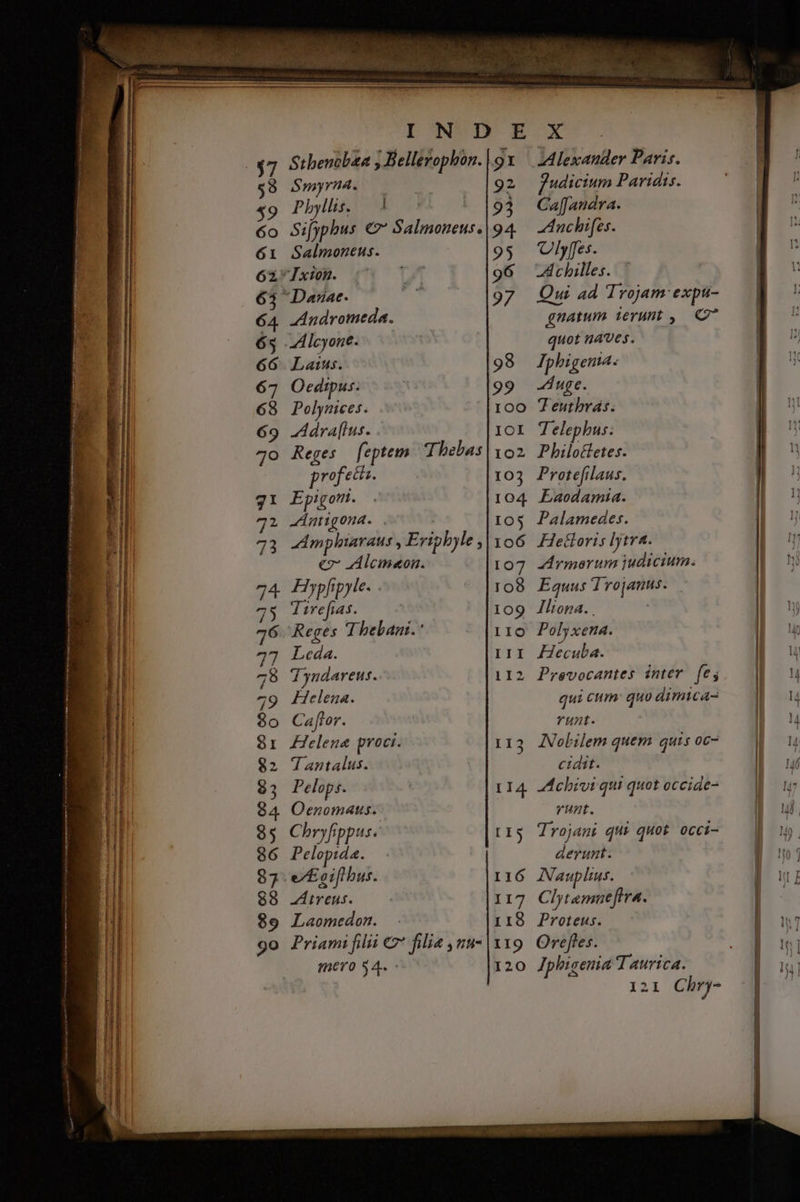 INDEX
57 Sthenobæa, Bellerophon.
58 Smyrna.
59 Phyllis.
60 Sisyphus & Salmoneus.
61 Salmoneus.
62 Ixion.
63 Danae.
64 Andromeda.
65 Alcyone.
66 Laius.
67 Oedipus.
68 Polynices.
69 Adrastus.
70 Reges septem Thebas
profecti.
71 Epigoni.
72 Antigona.
73 Amphiaraus, Eriphyle,
& Alcmæon.
74 Hypsipyle.
75 Tiresias.
76 Reges Thebani.
77 Leda.
78 Tyndareus.
79 Helena.
80 Castor.
81 Helenæ proci.
82 Tantalus.
83 Pelops.
84 Oenomaus.
85 Chrysippus.
86 Pelopidæ.
87 Ægisthus.
88 Atreus.
89 Laomedon.
90 Priami filii & filiæ, nu-
mero 54.
91 Alexander Paris.
92 Judicium Paridis.
93 Cassandra.
94 Anchises.
95 Ulysses.
96 Achilles.
97 Qui ad Trojam expu-
gnatum ierunt, &
quot naves.
98 Iphigenia.
99 Auge.
100 Teuthras.
101 Telephus.
102 Philoctetes.
103 Protesilaus.
104 Laodamia.
105 Palamedes.
106 Hectoris lytra.
107 Armorum judicium.
108 Equus Trojanus.
109 Iliona.
110 Polyxena.
111 Hecuba.
112 Prevocantes inter se,
qui cum quo dimica-
runt.
113 Nobilem quem quis oc-
cidit.
114 Achivi qui quot occide-
runt.
115 Trojani qui quot occi-
derunt.
116 Nauplius.
117 Clytæmnestra.
118 Proteus.
119 Orestes.
120 Iphigenia Taurica.
121 Chry-